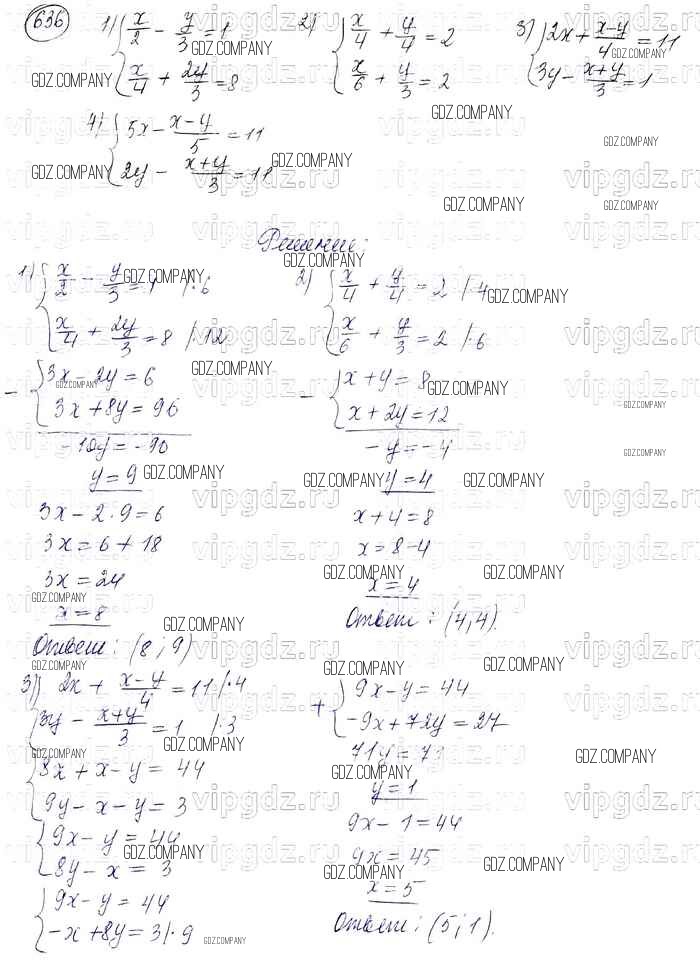 636
1) { x/2 - y/3 = 1
x/4 + 2y/3 = 8
2) { x/4 + y/4 = 2
x/6 + y/3 = 2
3) { 2x + (x-y)/4 = 11
3y - (x+y)/3 = 1
4) { 5x - (x-y)/5 = 11
2y - (x+y)/3 = 11
Решение:
1) { x/2 - y/3 = 1 /·6
x/4 + 2y/3 = 8 /·12
- { 3x - 2y = 6
3x + 8y = 96
-10y = -90
y = 9
3x - 2·9 = 6
3x = 6 + 18
3x = 24
x = 8
Ответ: (8; 9)
2) { x/4 + y/4 = 2 /·4
x/6 + y/3 = 2 /·6
- { x + y = 8
x + 2y = 12
-y = -4
y = 4
x + 4 = 8
x = 8-4
x = 4
Ответ: (4; 4).
3) { 2x + (x-y)/4 = 11 /·4
3y - (x+y)/3 = 1 /·3
{ 8x + x - y = 44
9y - x - y = 3
{ 9x - y = 44
8y - x = 3
{ 9x - y = 44
-x + 8y = 3 /·9
+ { 9x - y = 44
-9x + 72y = 27
71y = 71
y = 1
9x - 1 = 44
9x = 45
x = 5
Ответ: (5; 1).
GDZ.COMPANY
vipgdz.ru